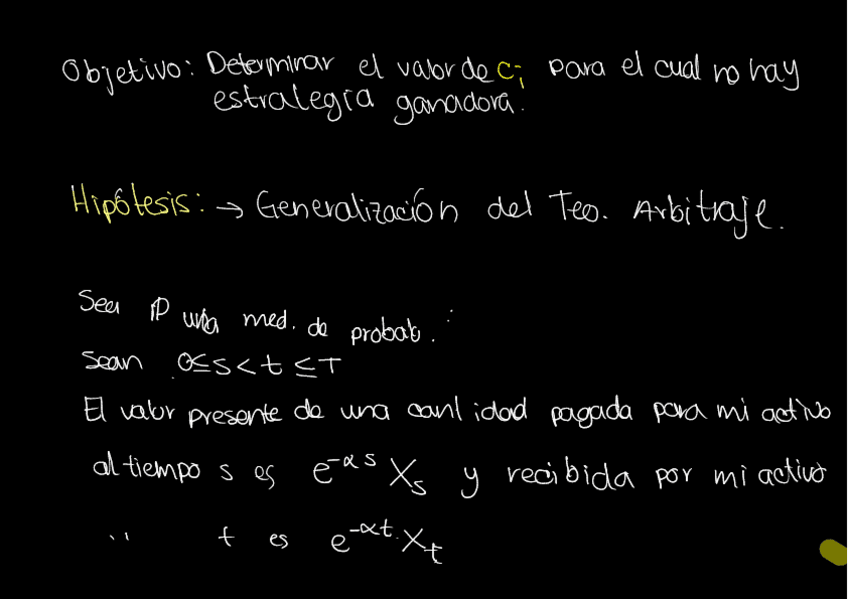 Objetivo: Determinar el valor de ci para el cual no hay
estrategia ganadora.
Hipótesis: → Generalización del Teo. Arbitraje.
Sea P una med. de probab.
Sean 0≤s<t≤T
El valor presente de una cantidad pagada para mi activo
al tiempo s es e^{-αs} X_s y recibida por mi activo
'' t es e^{-αt} X_t